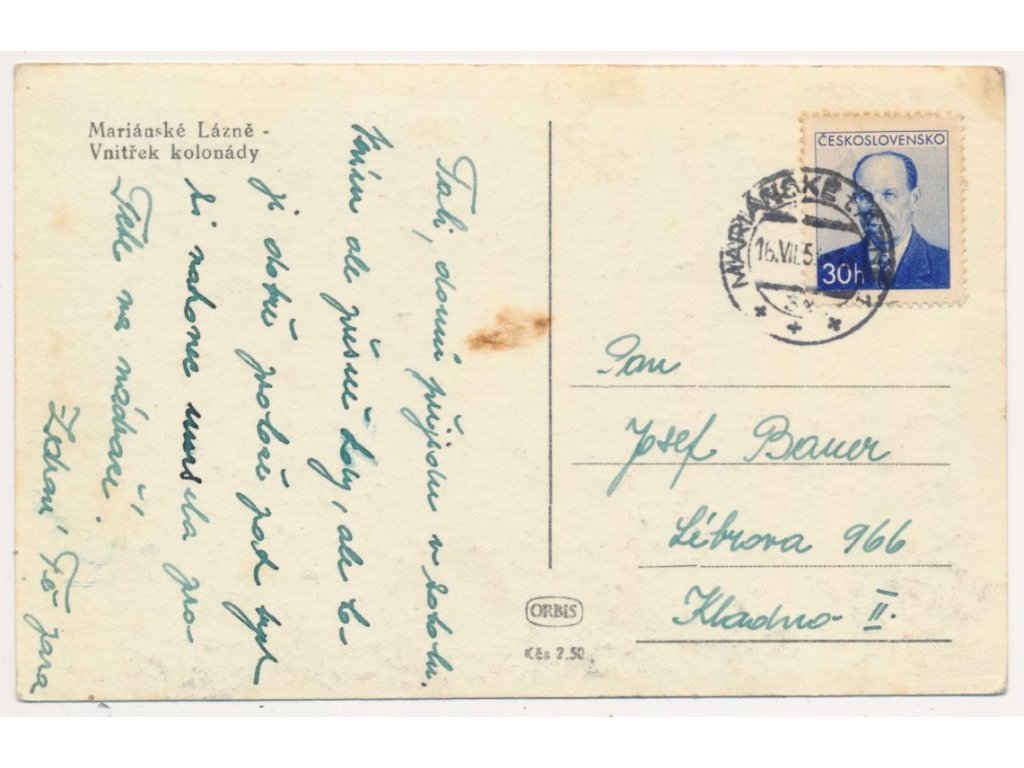 Mariánské Lázně -
Vnitřek kolonády
Tati, domů přijedu v sobotu.
ale přesně kdy, ale to-
je dobře protože pak bys
si nakonec musela pro-
Tebe na nádraží.
Zdraví Tě Jara
ČESKOSLOVENSKO
30h
MARIÁNSKÉ LÁZNĚ
16.VII.5
Pan
Josef Bauer
Lébrova 966
Kladno II.
ORBIS
Kčs 2.50